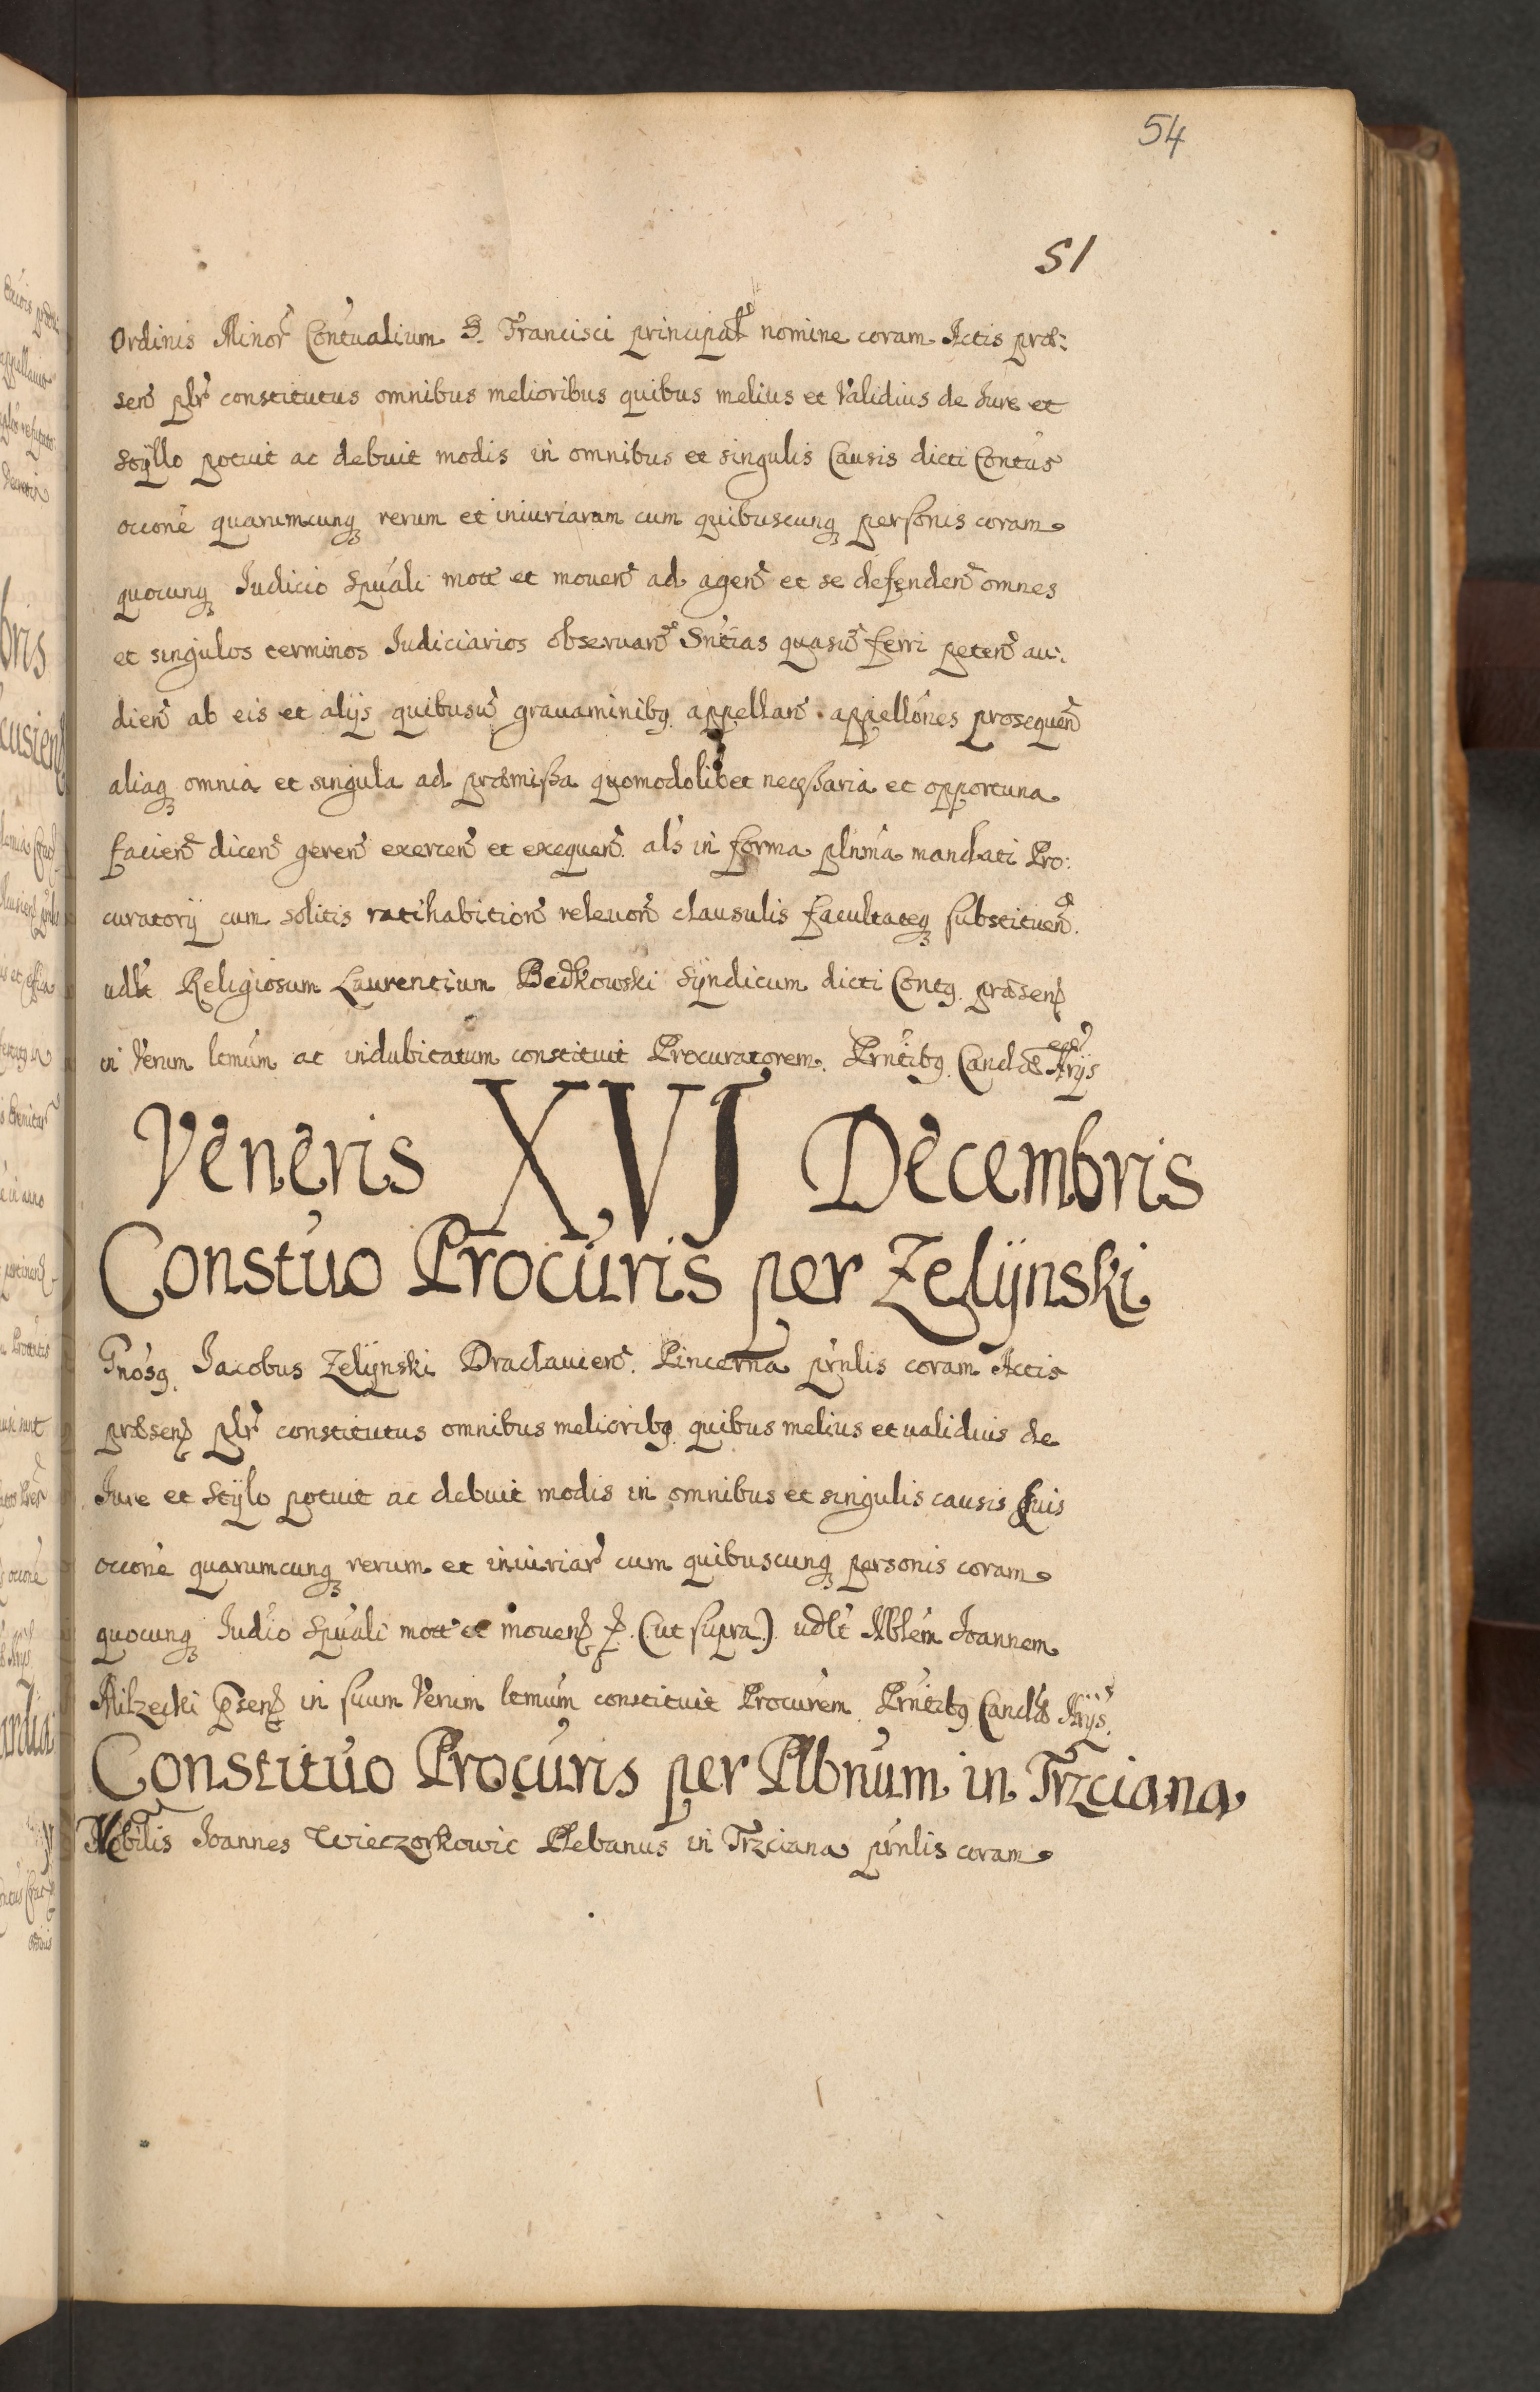 54
51
Ordinis Minor Contualium S. Francisci principal nomine coram Actis præ:
sen plr constitutus omnibus melioribus quibus melius et Validius de Jure et
Styllo potuit ac debuit modis in omnibus et singulis Causis dicti Contus
occone quarumcunq rerum et iniuriarum cum quibuscunq personis coram
quocunq Judicio Spuali mott et mouen ad agen et se defenden omnes
et singulos terminos Judiciarios obseruan Sntias quasuis ferri peten au:
dien ab eis et alijs quibusuis grauaminibq appellan appellones prosequen
aliaq omnia et singula ad præmissa quomodolibet necessaria et opportuna
facien dicen geren exercen et exequen als in forma plnma mandati Pro:
curatorij cum solitis ratihabition releuon clausulis facultateq substituen.
udlt Religiosum Laurentium Bedkowski Syndicum dicti Contq præsen
in Verum ltmum ac indubitatum constituit Procuratorem. Prntibq Candæ Arijs
Veneris XVI Decembris
Constuo Procuris per Zelijnski
Gnosq Jacobus Zelijnski Braclauien. Pincerna prnlis coram Actis
præsen plr constitutus omnibus melioribq quibus melius et ualidius de
Jure et Stylo potuit ac debuit modis in omnibus et singulis causis suis
occone quarumcunq rerum et iniuriar cum quibuscunq personis coram
quocunq Judio Spuali mott et mouen (ut supra) udlt Nblem Joannem
Milzecki Psen in suum Verum ltmum constituit Procurem Prntibq Candæ Arijs.
Constituo Procuris per Plbnum in Trzciana
Nobilis Joannes Wieczorkowic Plebanus in Trzciana prnlis coram